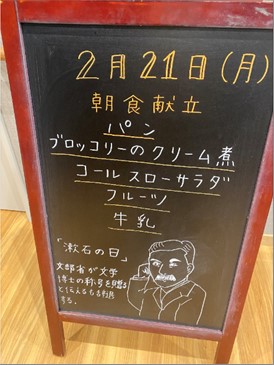 2月21日(月)
朝食献立
パン
ブロッコリーのクリーム煮
コールスローサラダ
フルーツ
牛乳
「漱石の日」
文部省が文学
博士の称号を贈る
と伝えるも辞退
する。